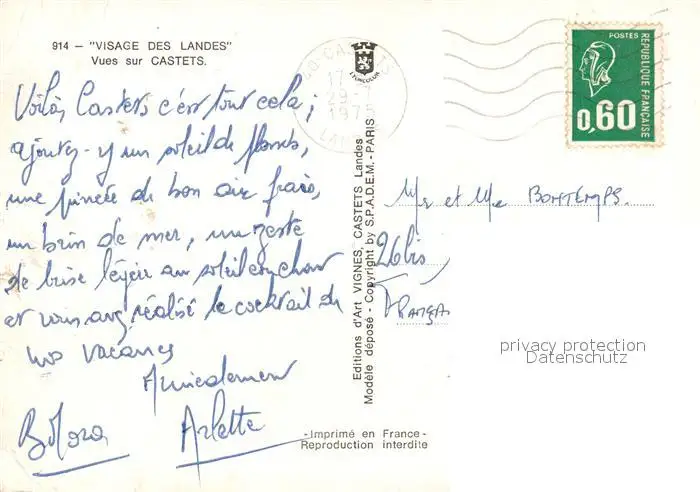 914 - "VISAGE DES LANDES"
Vues sur CASTETS.
Voilà, Castets c'est tout cela ;
ajoutez-y un soleil de plomb,
une pincée de bon air frais,
un brin de mer, un zeste
de brise légère au soleil couchant
et vous avez réalisé le cocktail de
nos vacances
Amicalement
Arlette
CASTETS
17
1975
LYONCOLOR
POSTES
REPUBLIQUE FRANÇAISE
0,60
Editions d'Art VIGNES, CASTETS Landes
Modèle déposé - Copyright by S.P.A.D.E.M. - PARIS
Mr et Me BONTEMPS.
26 bis,
privacy protection
Datenschutz
-Imprimé en France-
Reproduction interdite